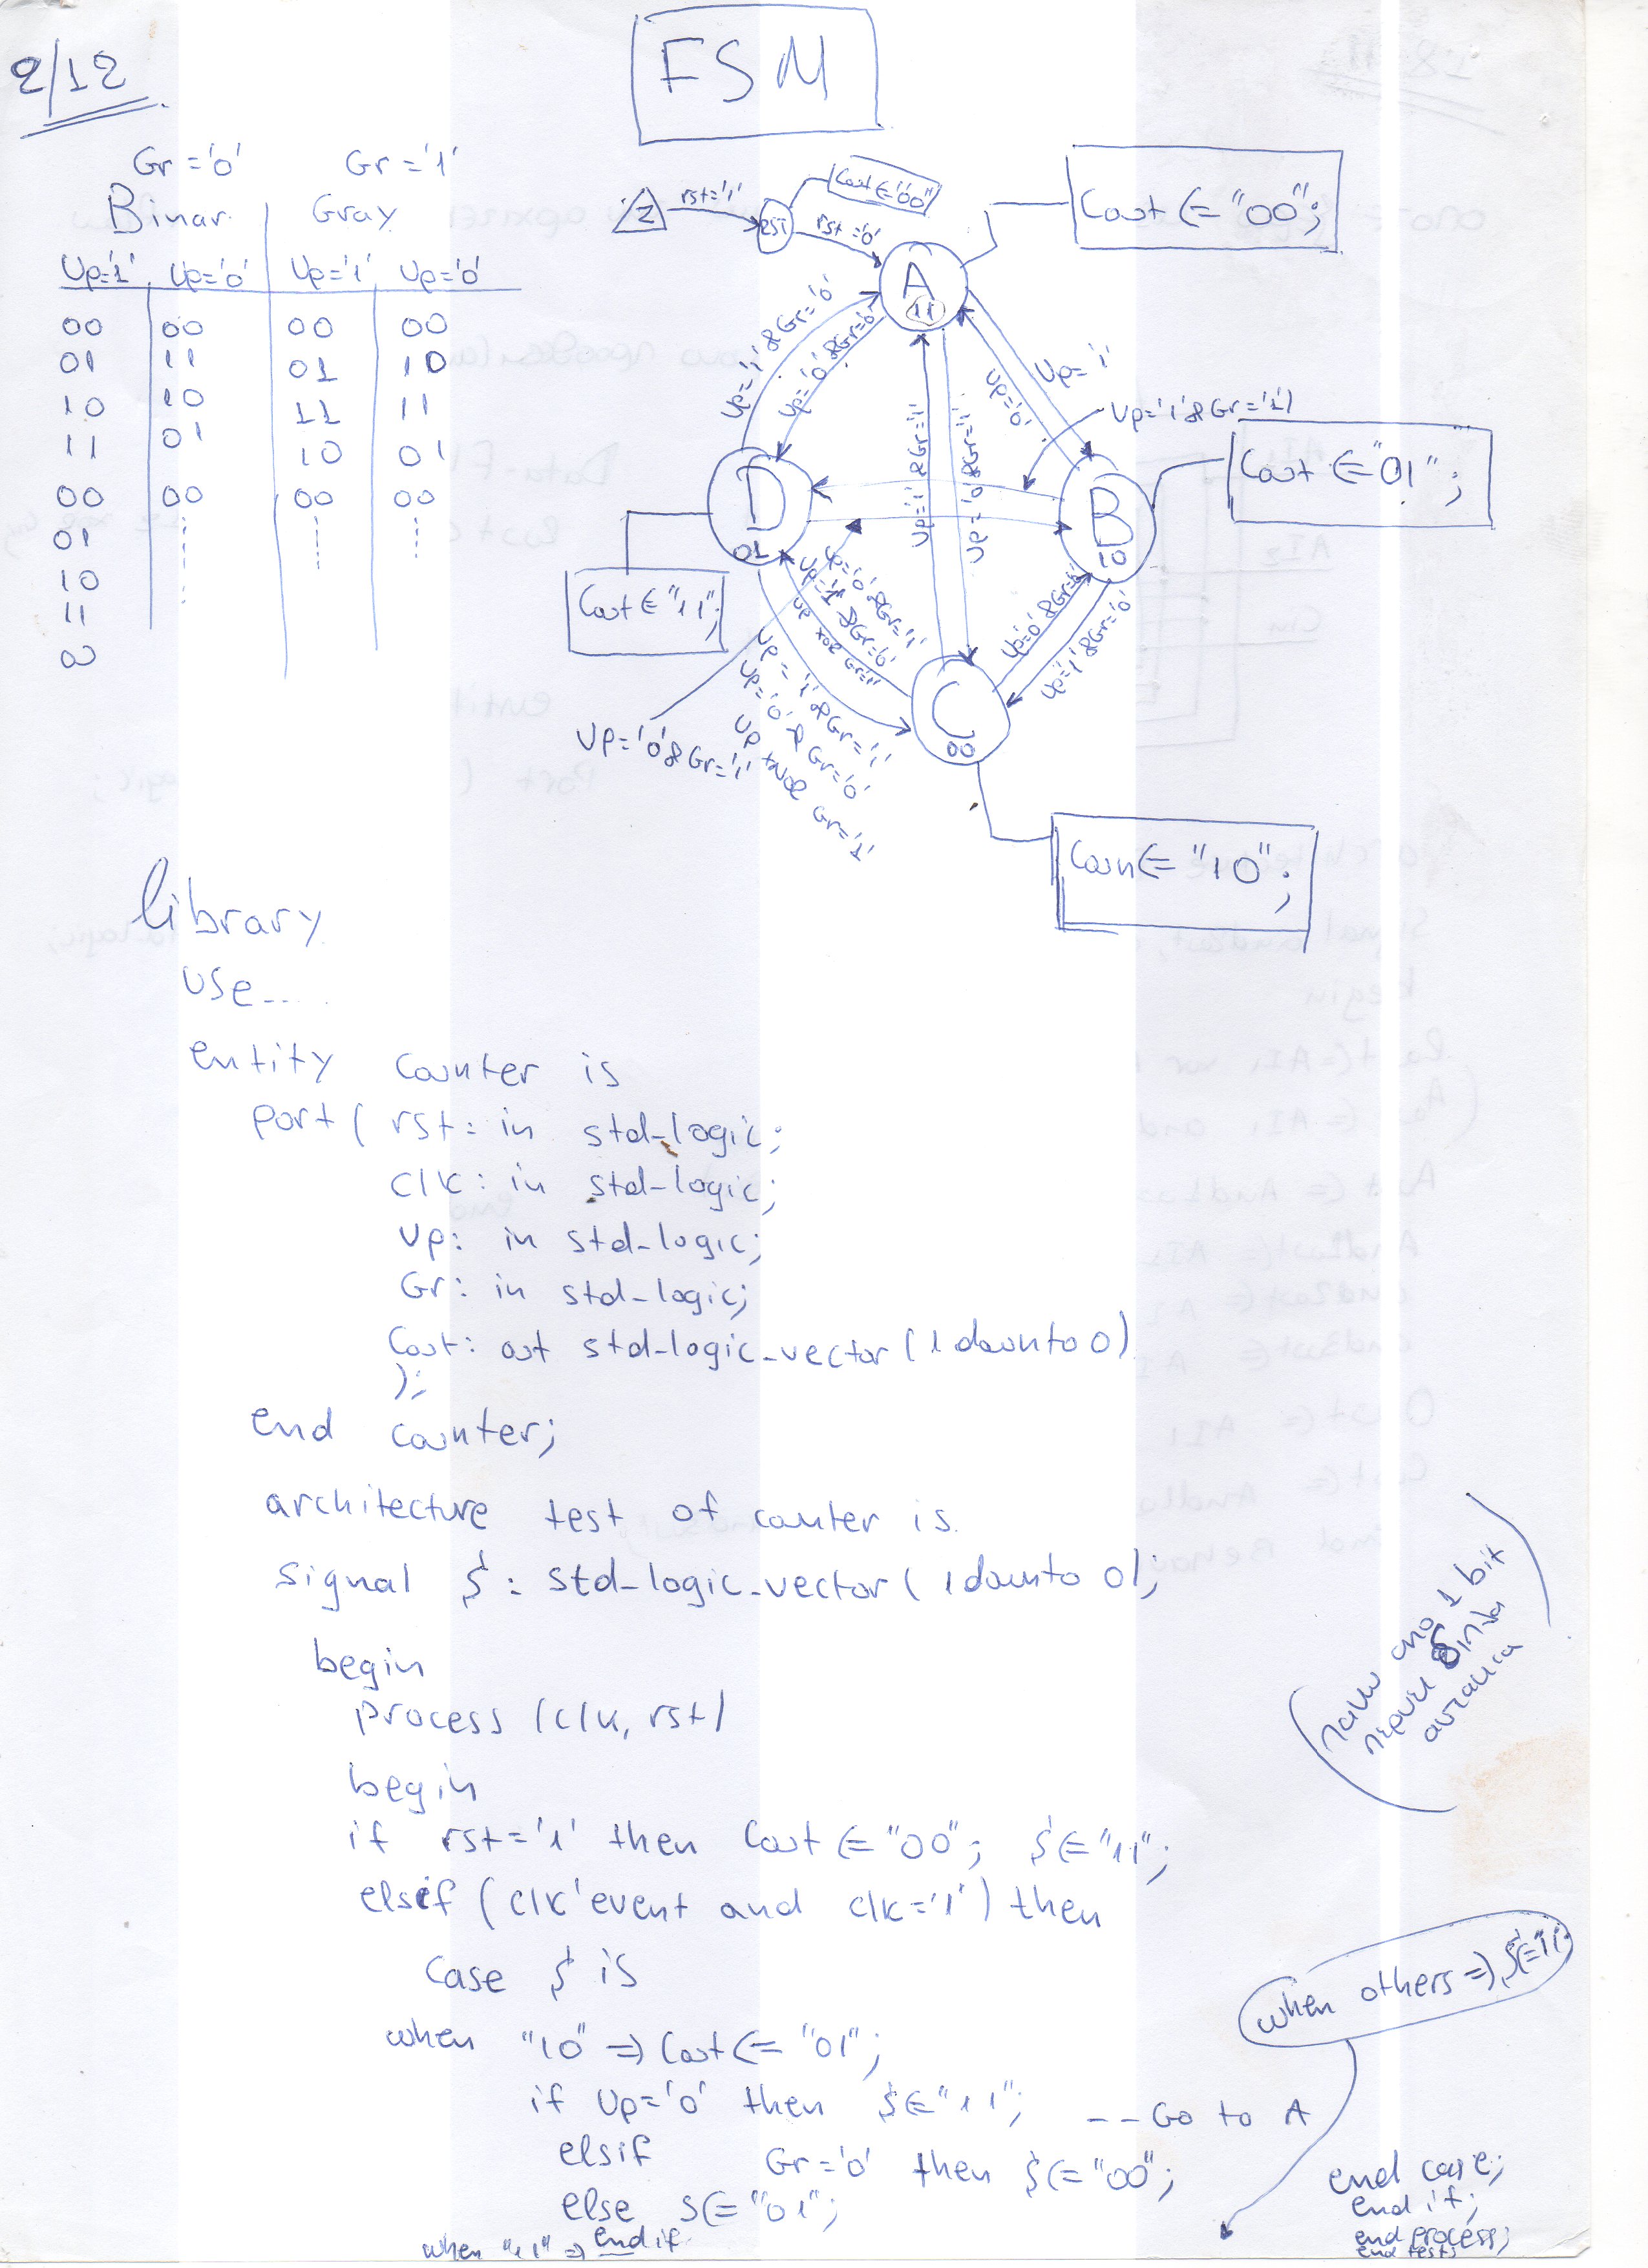 2/12
FSM
Gr='0' Gr='1'
Binar Gray
Up='1' Up='0' Up='1' Up='0'
00 00 00 00
01 11 01 10
10 10 11 11
11 01 10 01
00 00 00 00
01
10
11
00
Z
rst='1'
RST
Cout <= "00"
rst='0'
A
11
Cout <= "00";
Up='1' & Gr='0'
Up='0' & Gr='0'
Up='1'
Up='0'
Up='1' & Gr='1'
Up='1' & Gr='1'
Up='0' & Gr='1'
Cout <= "01";
D
01
B
10
Cout <= "11";
Up='0' & Gr='1'
Up='1' & Gr='0'
Up xor Gr='1'
Up='1' & Gr='1'
Up='0' & Gr='0'
Up xnor Gr='1'
Up='0' & Gr='0'
Up='1' & Gr='0'
C
00
Up='0' & Gr='1'
Coun <= "10";
library
use....
entity counter is
port( rst: in std-logic;
clk: in std-logic;
Up: in std-logic;
Gr: in std-logic;
Cout: out std-logic-vector(1 downto 0)
);
end counter;
architecture test of counter is
signal S: std-logic-vector(1 downto 0);
begin
process (clk, rst)
begin
if rst='1' then Cout <= "00"; S <= "11";
elsif (clk'event and clk='1') then
case S is
when "10" => Cout <= "01";
if Up='0' then S <= "11"; -- Go to A
elsif Gr='0' then S <= "00";
else S <= "01";
end if
when "11" =>
πανω απο 1 bit
περνει διπλα
αυτακια
when others => S <= "11"
end case;
end if;
end process;
end test;